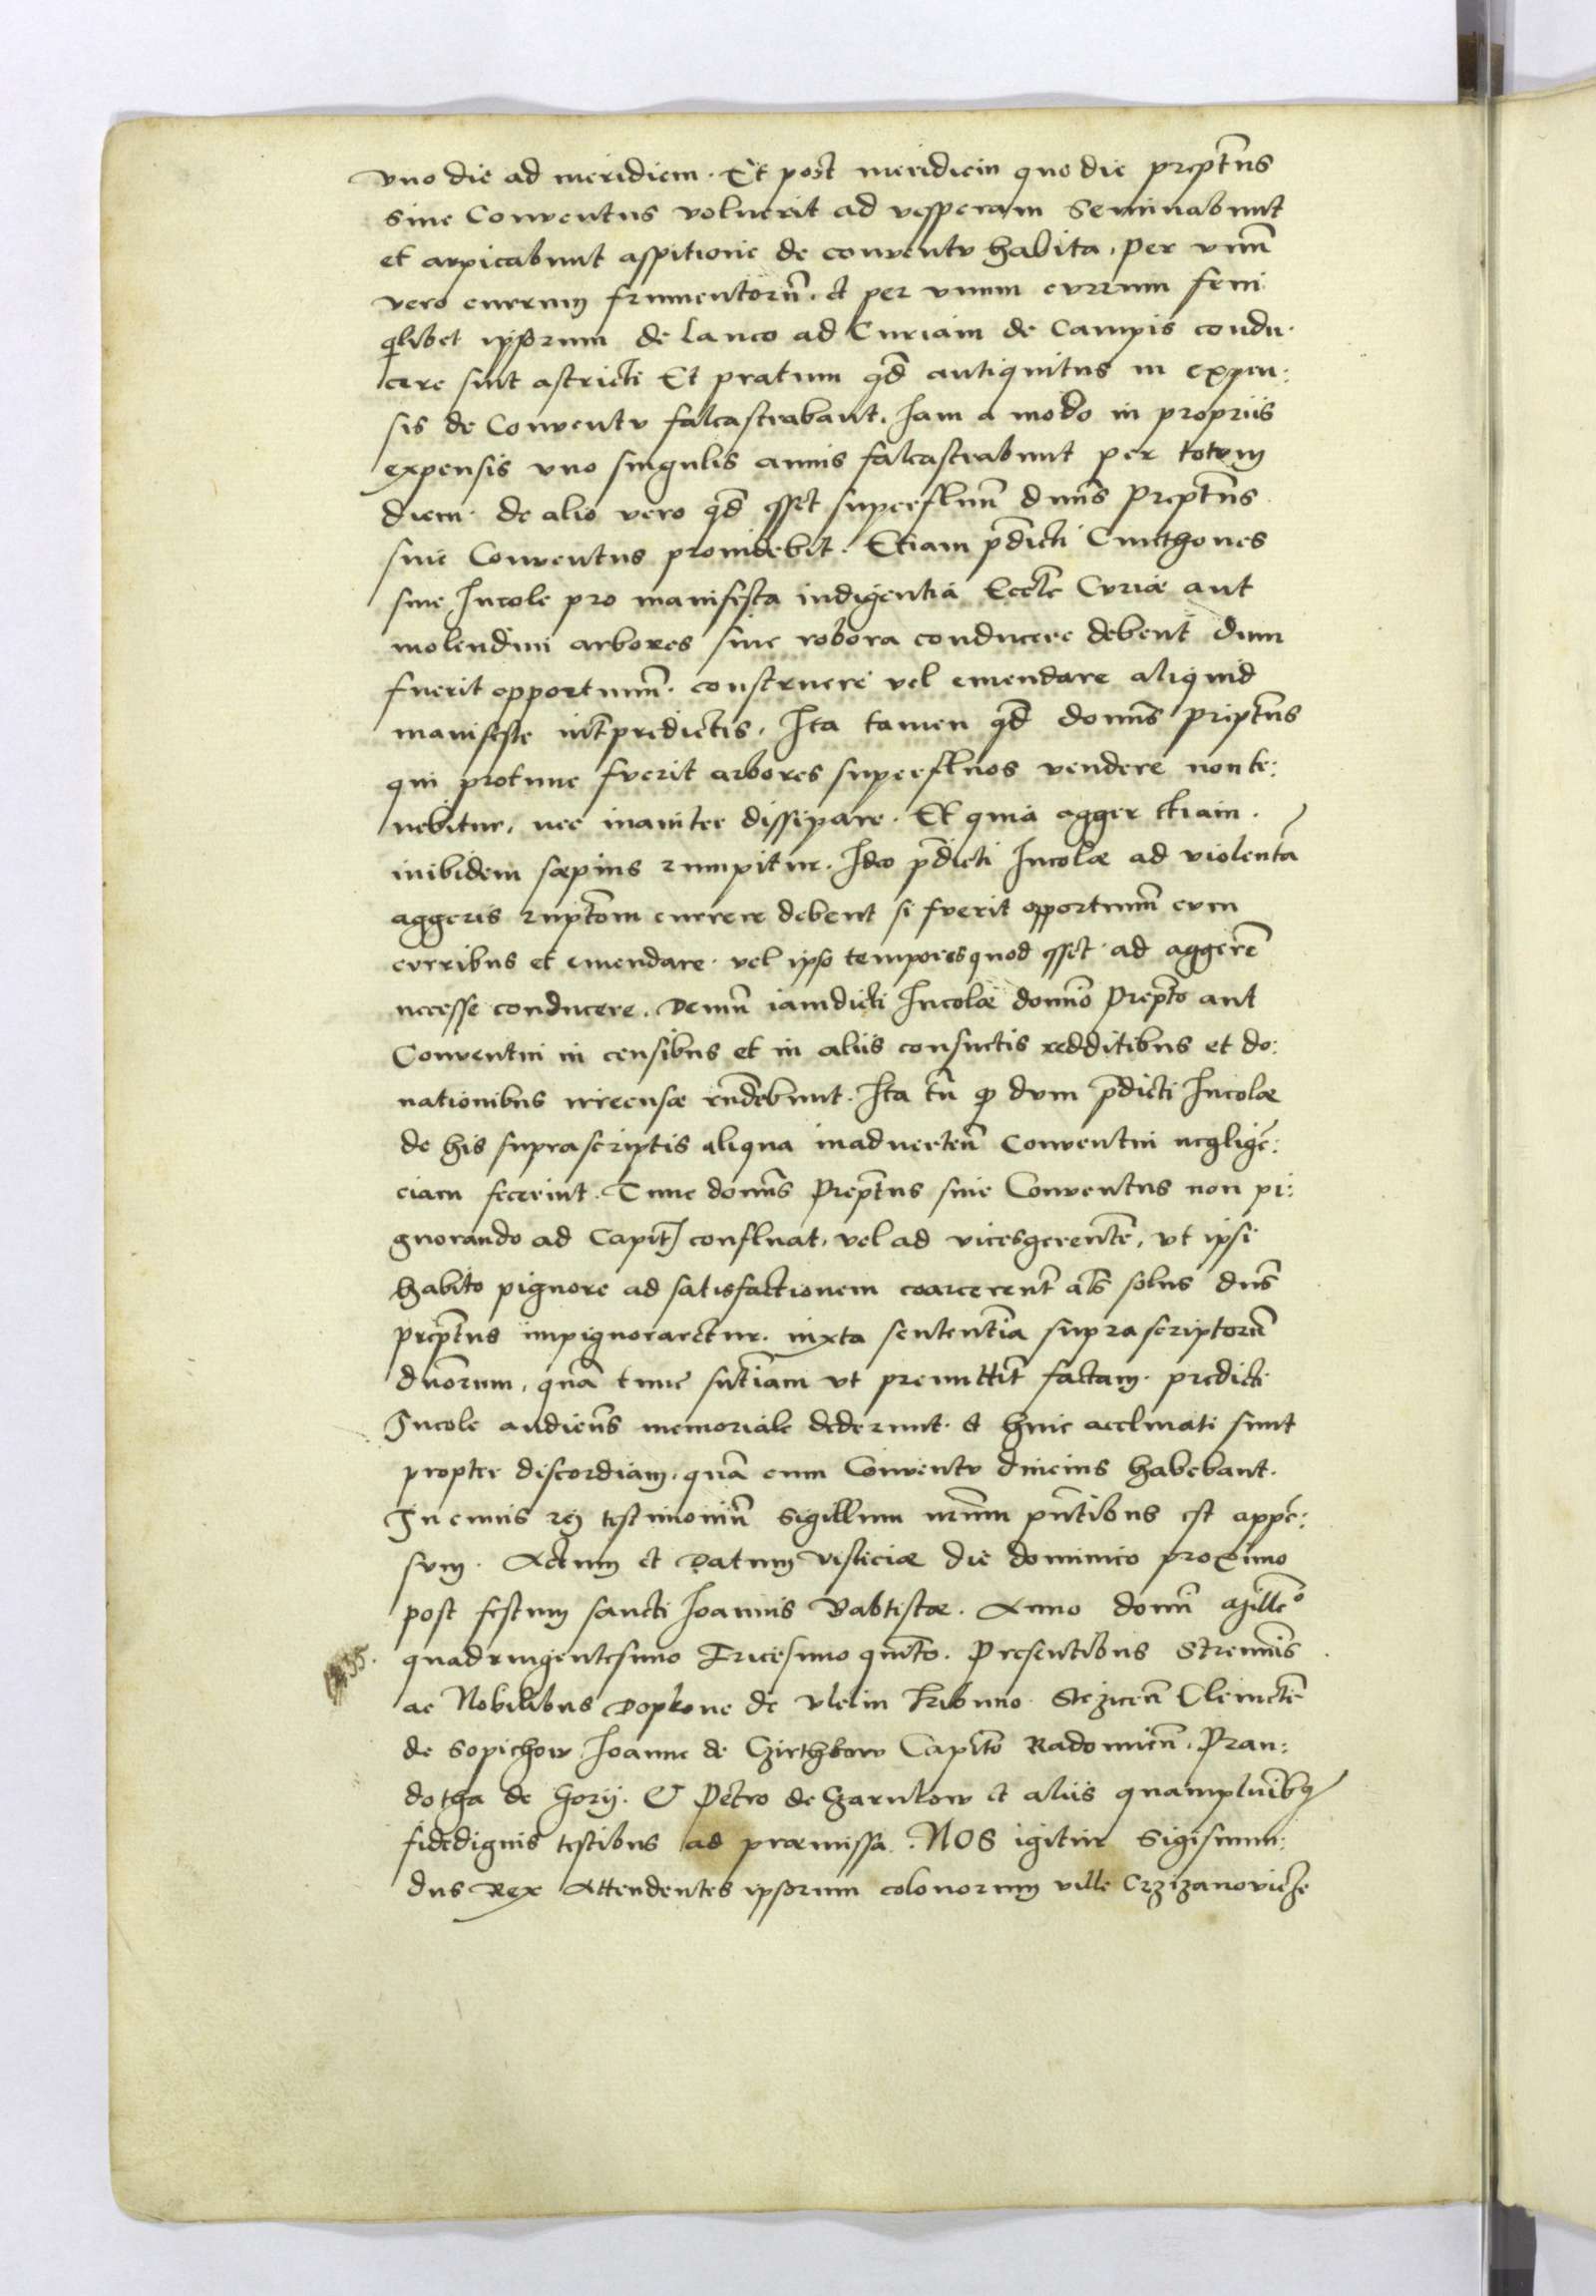 vno die ad meridiem. Et post meridiem quo die preptus
siue Conuentus voluerit ad vesperam Seminabunt
et arpicabunt aspitione de conuentv habita. per vnũ
vero currum frumentorũ. et per vnum currum feni
qlibet ipsorum de laneo ad Curiam de Campis condu:
cere sint astricti Et pratum qd antiquitus in expen:
sis de Conuentv falcastrabant. Iam a modo in propriis
expensis vno singulis annis falcastrabunt per totum
diem. de alio vero qd esset superfluũ dnus Preptus
siue Conuentus prouidebit. Etiam pdicti Cmethones
siue Incole pro manifesta indigentia Eccle Curiæ aut
molendini arbores siue robora conducere debent dum
fuerit opportunũ. construere vel emendare aliquid
manifeste in predictis. Ita tamen qd domus preptus
qui protunc fverit arbores superfluos vendere non te:
nebitur, nec inaniter dissipare. Et quia agger etiam.
inibidem sæpius rumpitur. Ideo pdicti Incolæ ad violentã
aggeris ruptom currere debent si fverit opportunũ cum
curribus et emendare. vel ipso tempore quod esset ad aggerẽ
necesse conducere. Demũ iamdicti Incolæ domino Prepto aut
Conuentui in censibus et in aliis consuetis redditibus et do:
nationibus irrecusæ rñdebunt. Ita tñ q dum pdicti Incolæ
de his suprascriptis aliqua inaduerten Conuentui negligẽ:
ciam fecerint. Tunc domus Preptus siue Conuentus non pi:
gnorando ad Capit confluat, vel ad vicesgerentẽ, vt ipsi
habito pignore ad satisfactionem coarcerent als solus dns
preptus impignoraretur. iuxta sententiã suprascriptorũ
dnorum, quã tunc sntiam vt premittit factam. predicti
Incole audiens memoriale dederunt. et huic acclinati sunt
propter discordiam, quã cum Conuentv diucius habebant.
In cuius rej testimoniũ sigillum nrum pntibus est appẽ:
sum. Actum et Datum visliciæ die dominico proximo
post festum sancti Ioannis Babtistæ. Anno domi Millo
quadringentesimo Tricesimo quinto. Presentibus Strenuis
ac Nobilibus Dopkone de vlein Tribuno Stezicen Clemete
de Sopichow Ioanne de Czirthkow Capito Radomien. Pran:
dotha de Gorij. & Petro de Czarnkow et aliis quamplurib
fidedignis testibus ad præmissa. NOS igitur Sigismun:
dus Rex Attendentes ipsorum colonorum ville Crzizanovicze